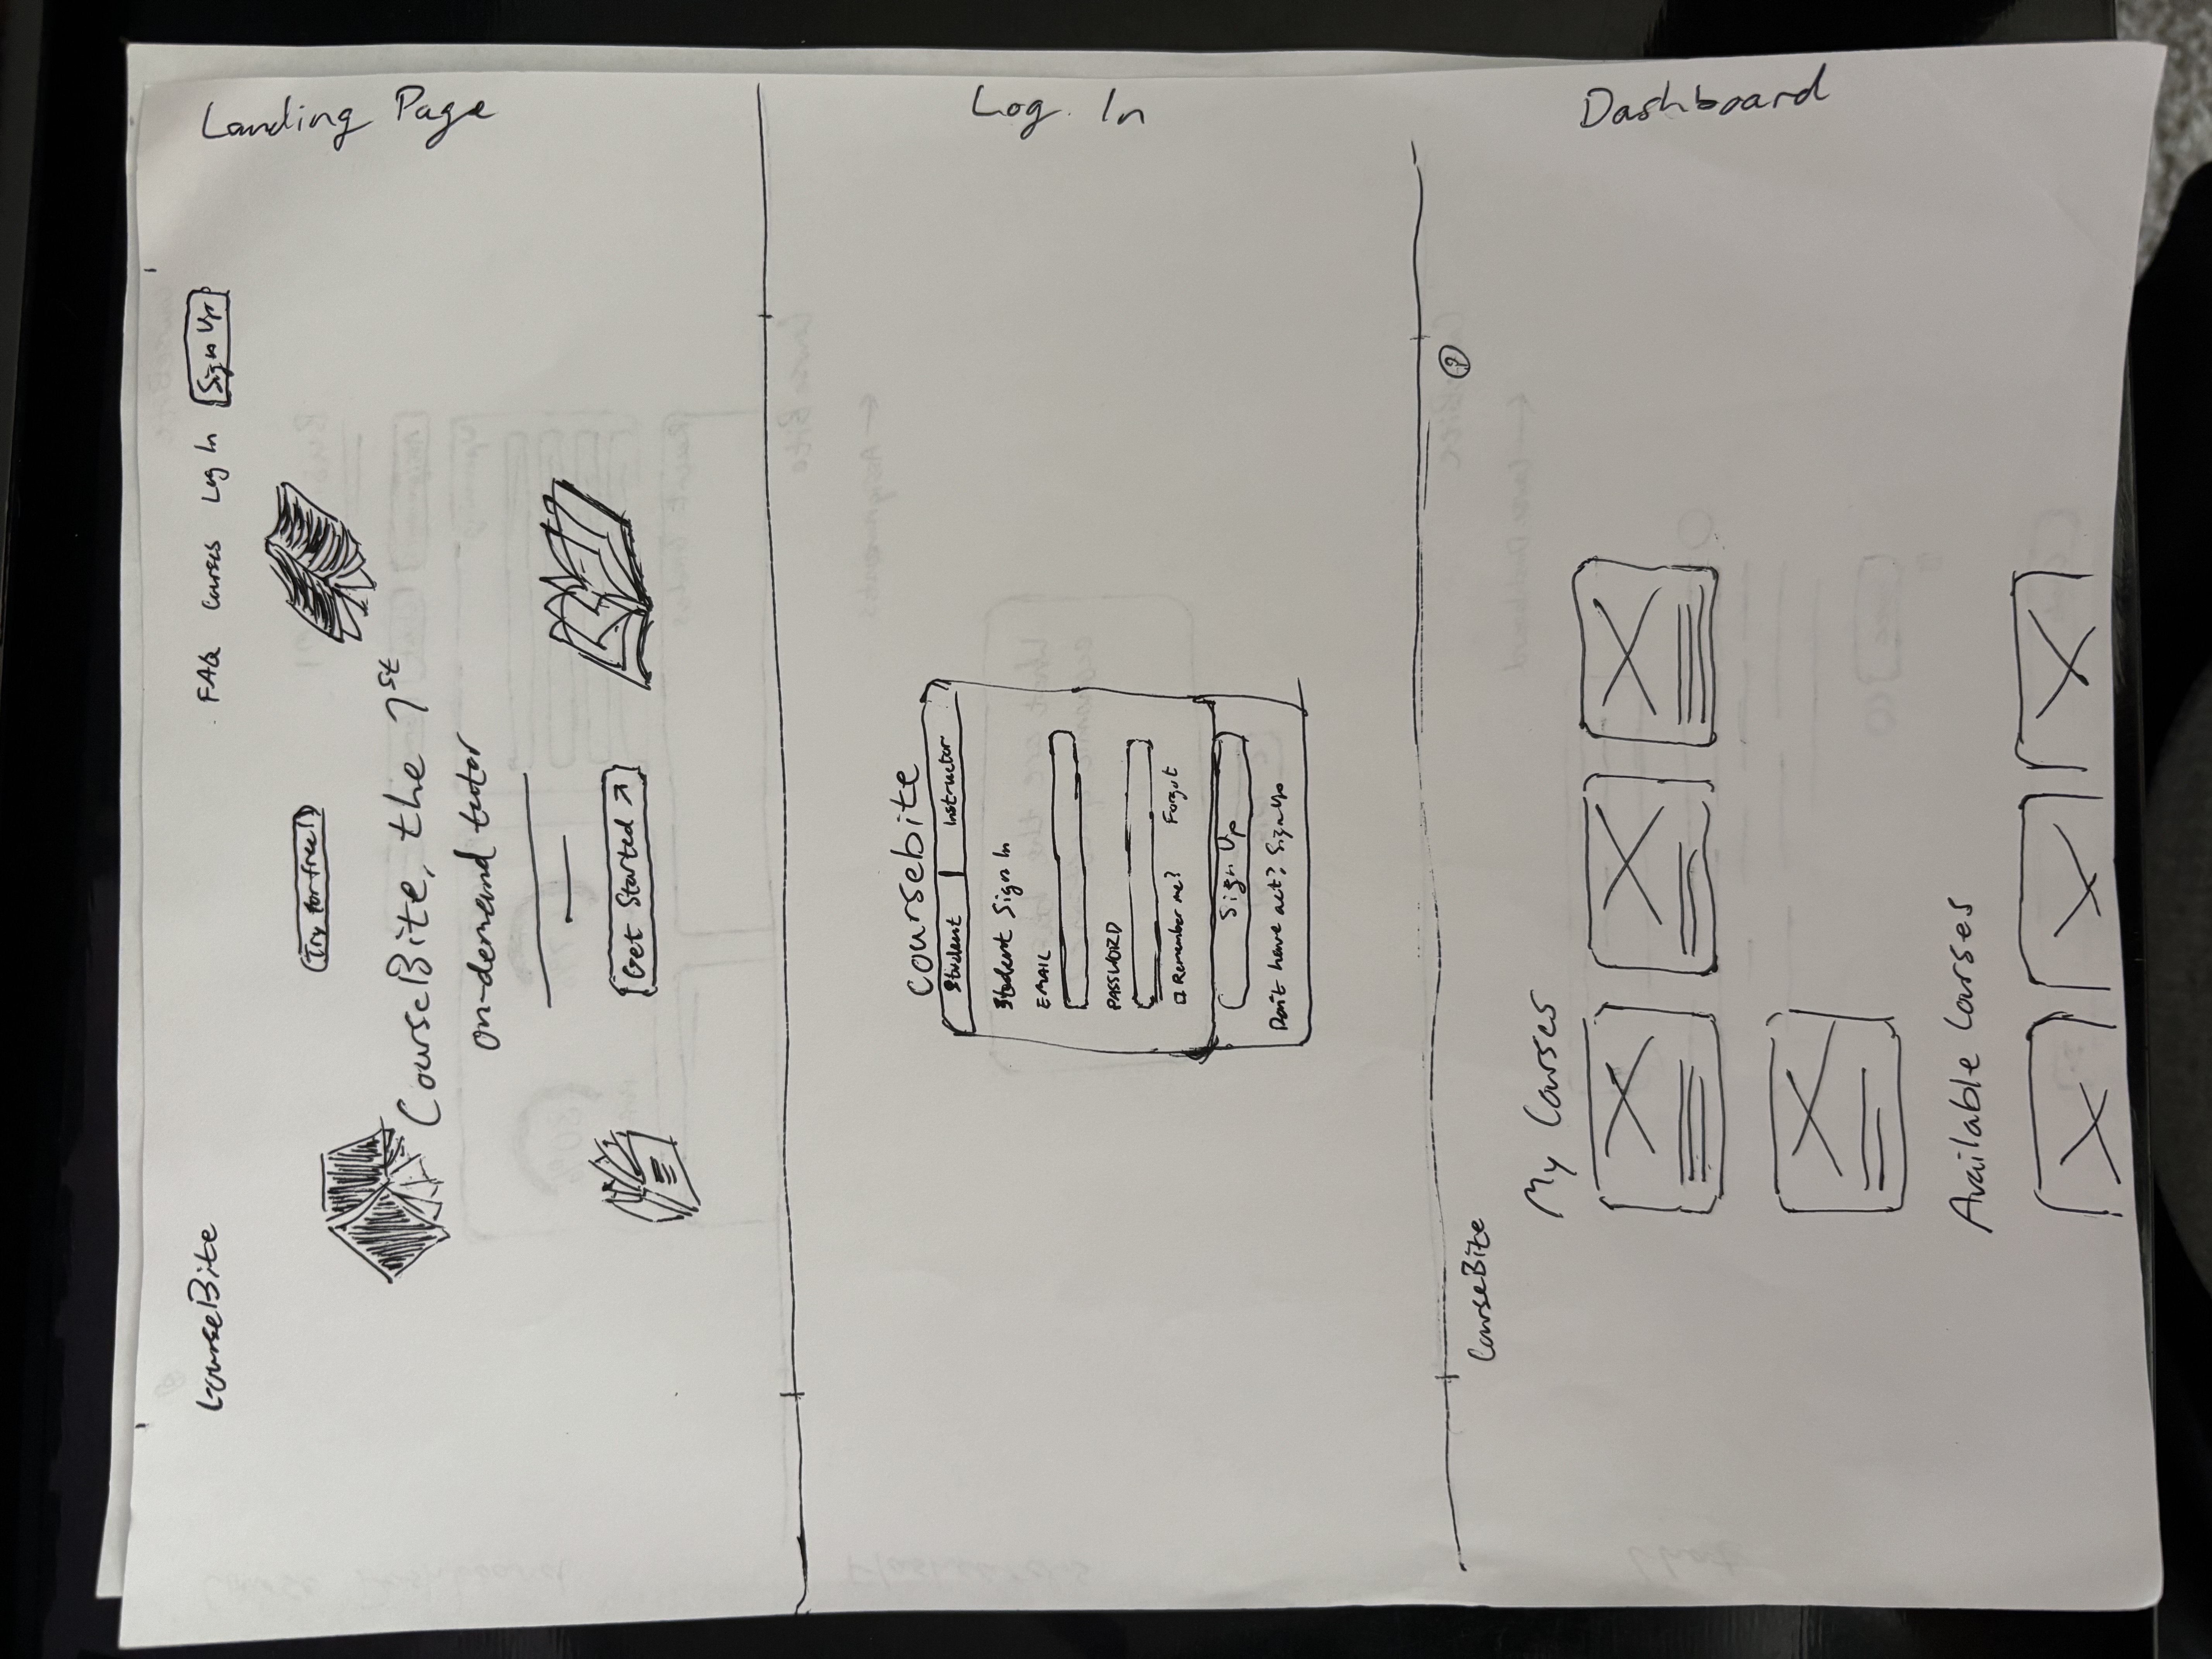 CourseBite
FAQ Courses Log In Sign Up
Try for free!
CourseBite, the 1st
on-demand tutor
Get Started ↗
Landing Page
coursebite
Student Instructor
Student Sign In
EMAIL
PASSWORD
Remember me? Forgot
Sign Up
Don't have act? Sign Up
Log In
CourseBite
My Courses
Available Courses
Dashboard